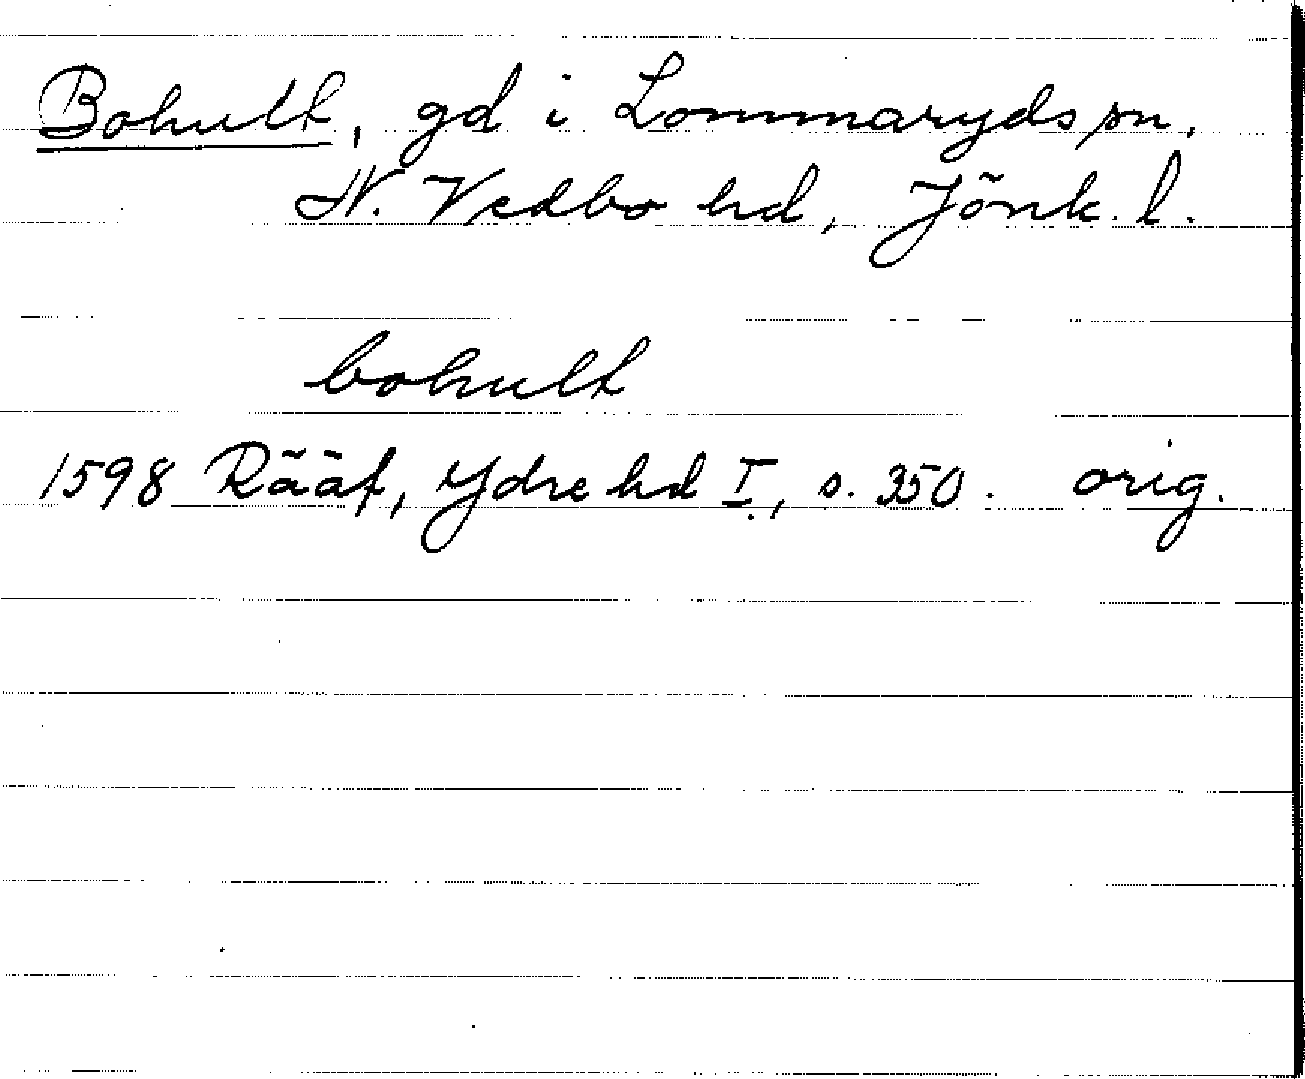 Bohult, gd i Lommaryds sn,
N. Vedbo hd, Jönk. l.
bohult
1598 Rääf, Ydre hd I, s. 350. orig.